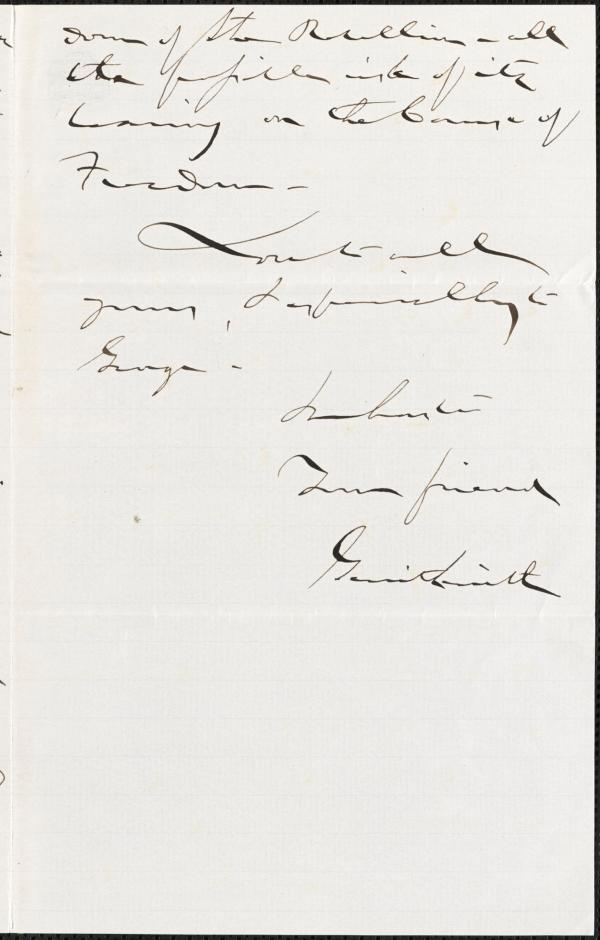 down of the Rebellion - all
the possible risk of its
bearing on the Cause of
Freedom -
Love to all
yours, & especially to
George -
In haste
Your friend
Gerrit Smith